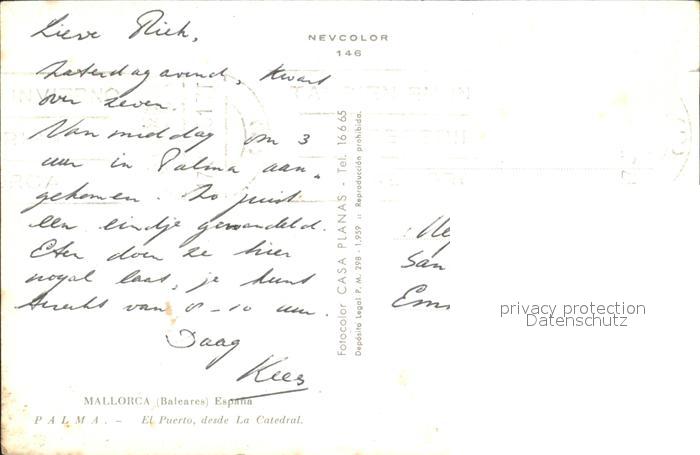 Lieve Riek,
Zaterdagavond, kwart
over zeven.
Van middag om 3
uur in Palma aan-
gekomen. Zo juist
een eindje gewandeld.
Eten doen ze hier
nogal laat, je kunt
terecht van 8-10 uur.
Daag
Kees
MALLORCA (Baleares) España
PALMA. - El Puerto, desde La Catedral.
NEVCOLOR
146
Fotocolor CASA PLANAS - Tel. 16665
Depósito Legal P. M. 298 - 1.959 :: Reproducción prohibida.
San
privacy protection
Datenschutz